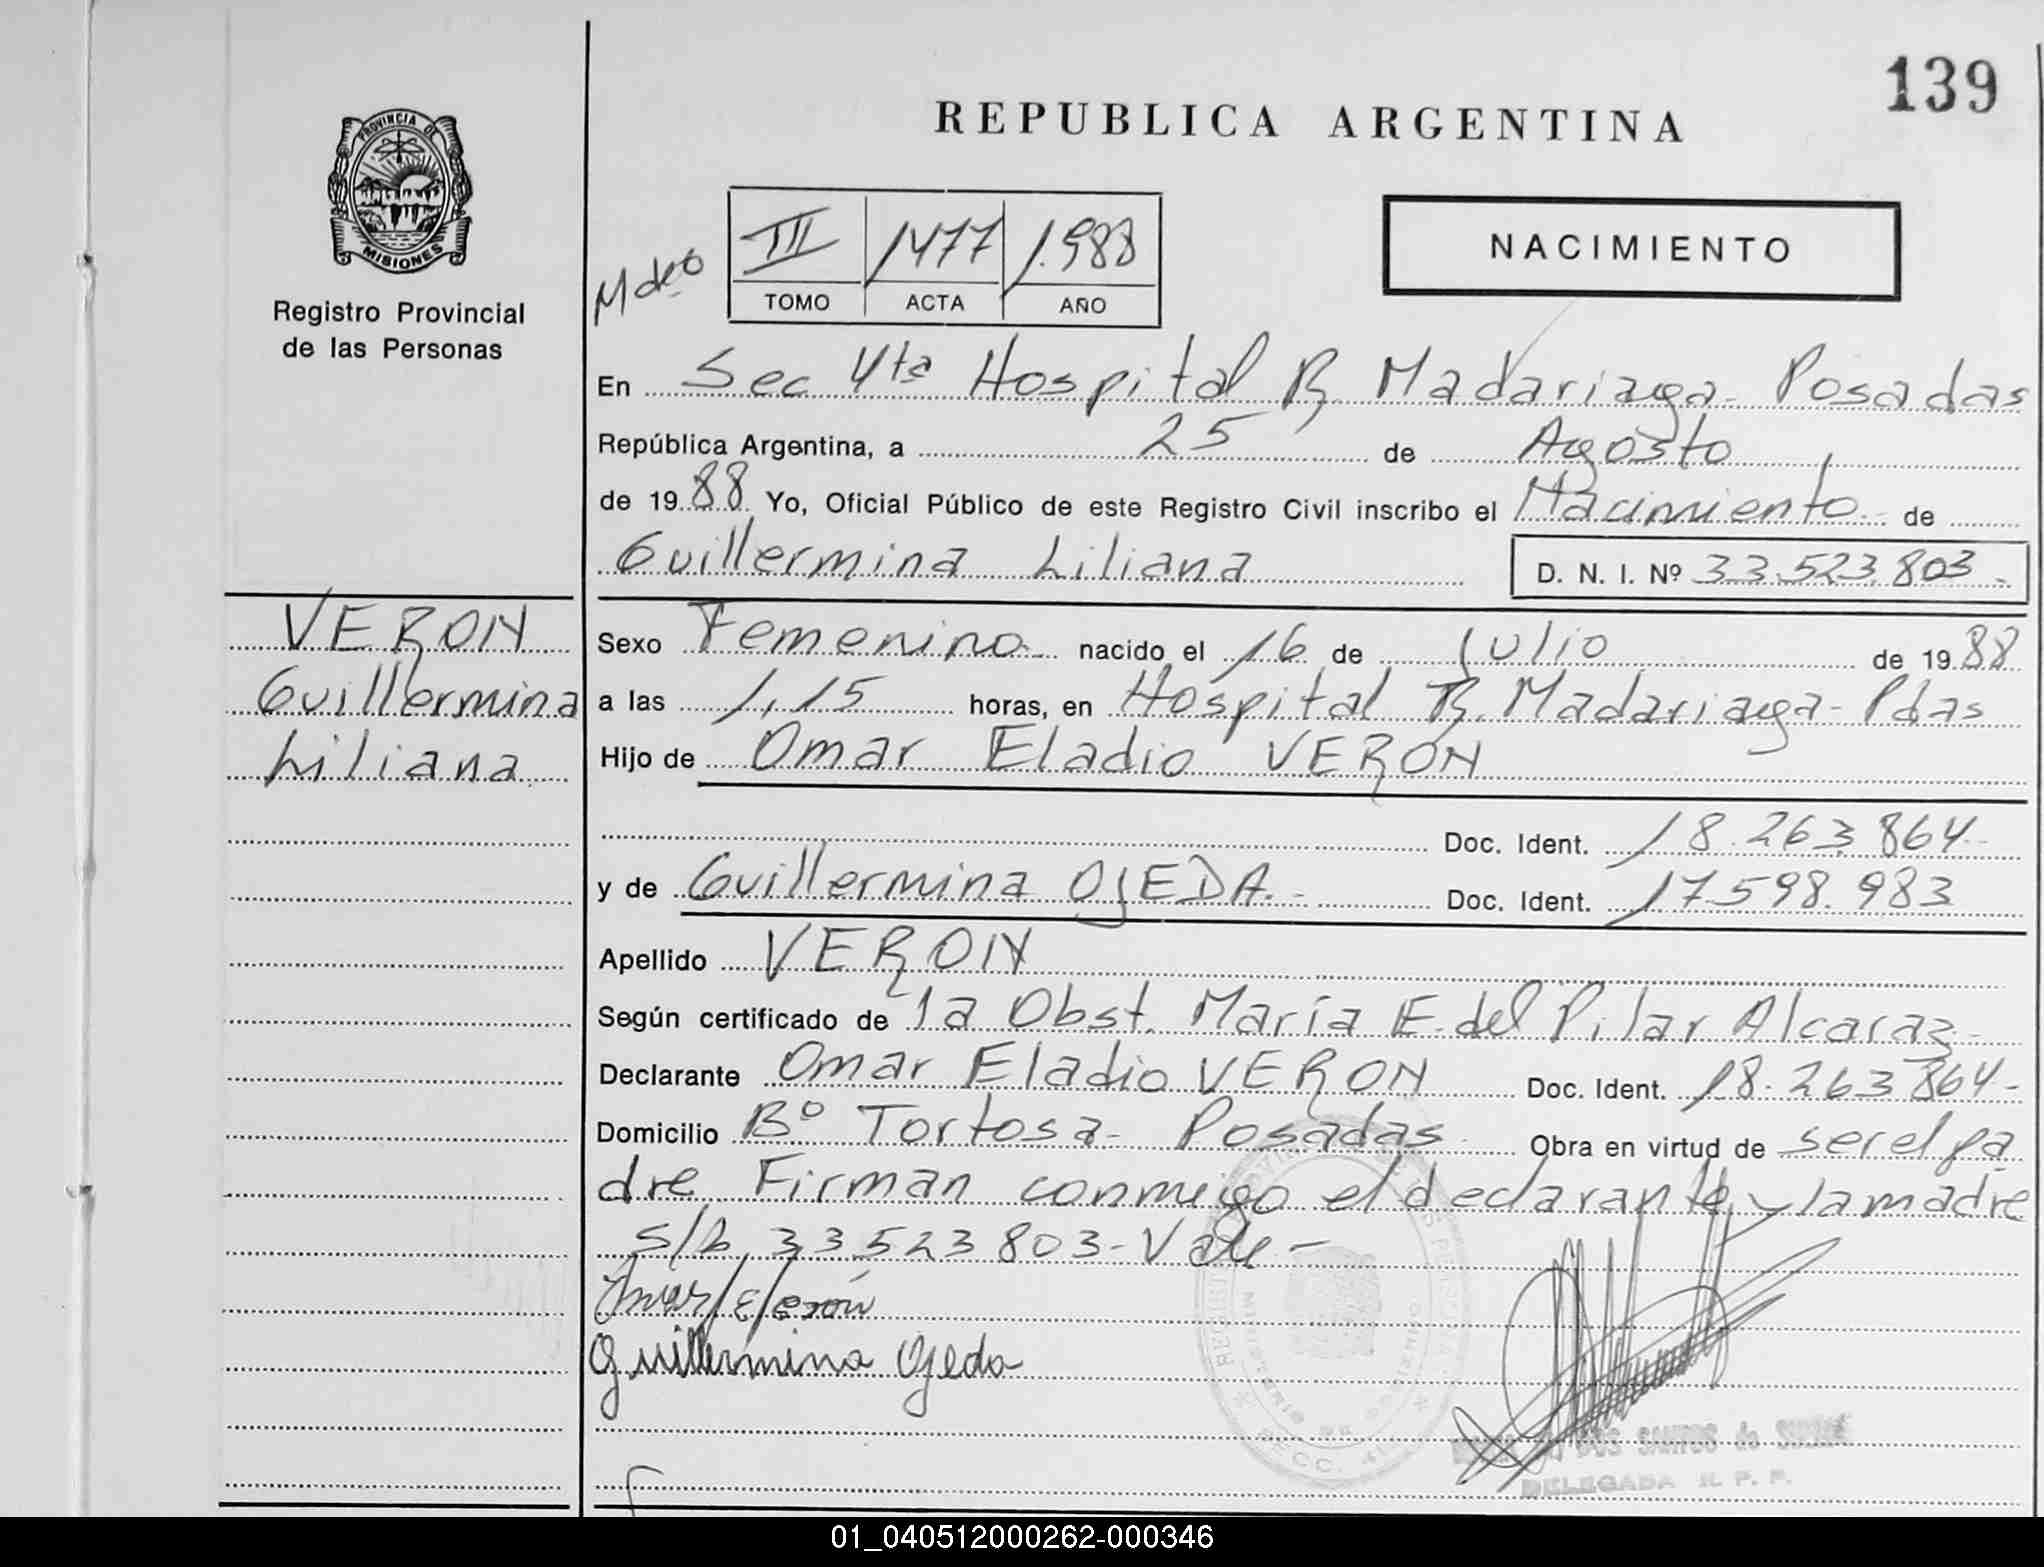 139
REPUBLICA ARGENTINA
PROVINCIA DE
MISIONES
Registro Provincial
de las Personas
III 1477 1.988
TOMO ACTA AÑO
NACIMIENTO
En Sec 4ta Hospital R. Madariaga - Posadas
República Argentina, a 25 de Agosto
de 1988 Yo, Oficial Público de este Registro Civil inscribo el Nacimiento - de
Guillermina Liliana
D. N. I. Nº 33.523.803 -
VERON
Guillermina
Liliana
Sexo Femenino nacido el 16 de Julio de 1988
a las 1,15 horas, en Hospital R. Madariaga - Pdas
Hijo de Omar Eladio VERON
Doc. Ident. 18.263.864-
y de Guillermina OJEDA.- Doc. Ident. 17.598.983
Apellido VERON
Según certificado de la Obst. María E. del Pilar Alcaraz-
Declarante Omar Eladio VERON Doc. Ident. 18.263.864-
Domicilio Bº Tortosa - Posadas Obra en virtud de ser el pa
dre Firman conmigo el declarante y la madre
s/b 33.523.803 - Vale -
Guillermina Ojeda
DOS SANTOS de
DELEGADA R. P. P.
01_040512000262-000346